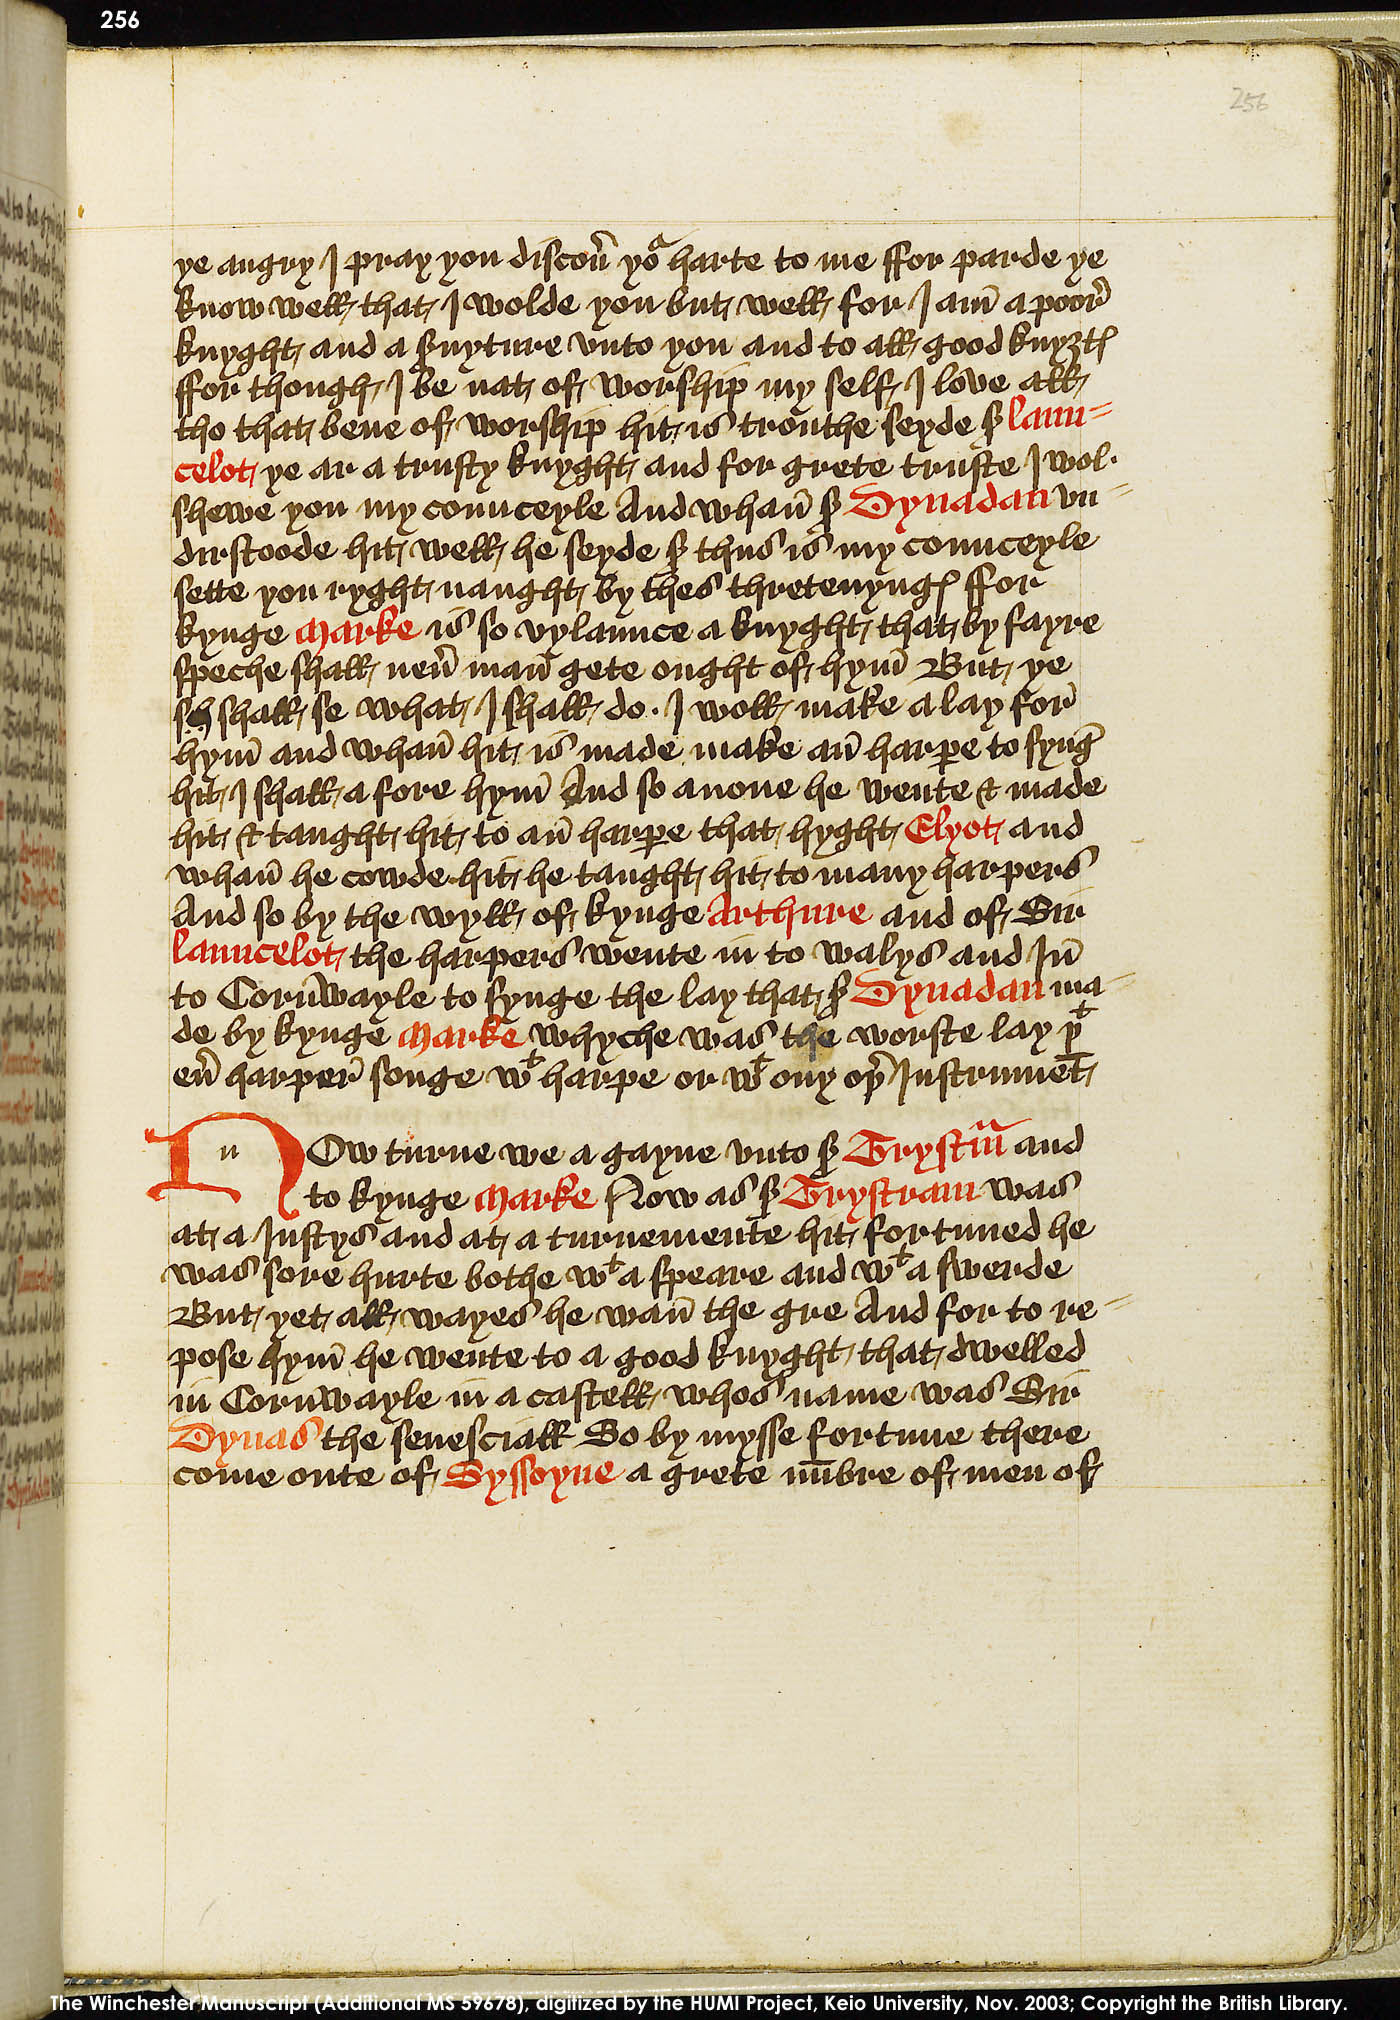 256
256
ye angry I pray you discoũ yoᵃ harte to me ffor parde ye
know well that I wolde you but well for I am̄ a poor̄
knyght and a s̄uyture vnto you and to all good knyȝtꝭ
ffor though I be nat of worship my self I love all
tho that bene of worship hit is trouthe seyde sꝰ laun=
celot ye ar a trusty knyght and for grete truste I wol·
shewe you my counceyle And whan̄ sꝰ Dynadan vn=
dirstoode hit well he seyde sꝰ thus is my counceyle
sette you ryght naught by thes thretenyngꝭ ffor
kynge Marke is so vylaunce a knyght that by fayre
speche shall neũ man̄ gete ought of hym̄ But ye
sh shall se what I shall do· I woll make a lay for̄
hym̄ and whan̄ hit is made make an̄ harpe to synḡ
hit I shall a fore hym̄ And so anone he wente & made
hit & taught hit to an̄ harpe that hyght Elyot and
whan̄ he cowde hit he taught hit to many harpers
And so by the wyll of kynge Arthure and of Sir
launcelot the harpers wente in to walys and In̄
to Corn̄wayle to synge the lay that sꝰ Dynadan ma=
de by kynge Marke whyche was the worste lay pᵗ
eũ harper̄ songe wᵗ harpe or wᵗ ony op̄ Instrumēt
n
NOw turne we a gayne vnto sꝰ Trystᵃm̄ and
to kynge Marke Now as sꝰ Trystram was
at a Iustys and at a turnemente hit fortuned he
was sore hurte bothe wᵗ a speare and wᵗ a swerde
But yet all wayes he wan̄ the gre And for to re=
pose hym̄ he wente to a good knyght that dwelled
in Corn̄wayle in a castell whos name was Sir
Dynas the senesciall So by mysse fortune there
come oute of Syssoyne a grete nūbre of men of
The Winchester Manuscript (Additional MS 59678), digitized by the HUMI Project, Keio University, Nov. 2003; Copyright the British Library.